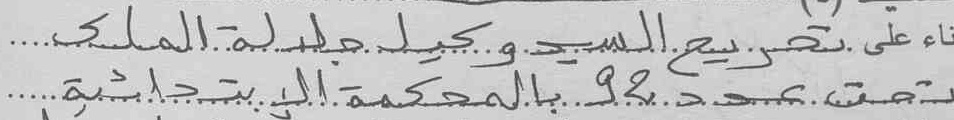 ناء على تصريح السيد وكيل جلالة الملك
تحت عدد 92 بالمحكمة الابتدائية